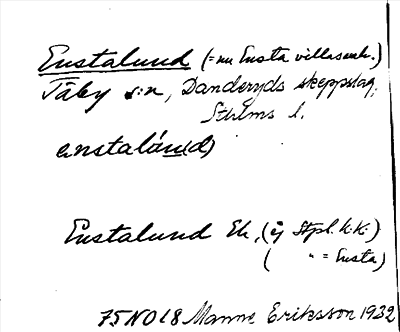 Enstalund (= nu Ensta villasamh.)
Täby s:n, Danderyds skeppslag,
Sthlms l.
enstalún(d)
Enstalund Ek, (ej Stpl. k.k.)
( " = Ensta)
75 NO 18 Manne Eriksson 1932